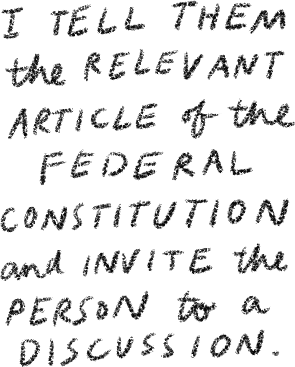 I TELL THEM
the RELEVANT
ARTICLE of the
FEDERAL
CONSTITUTION
and INVITE the
PERSON to a
DISCUSSION.